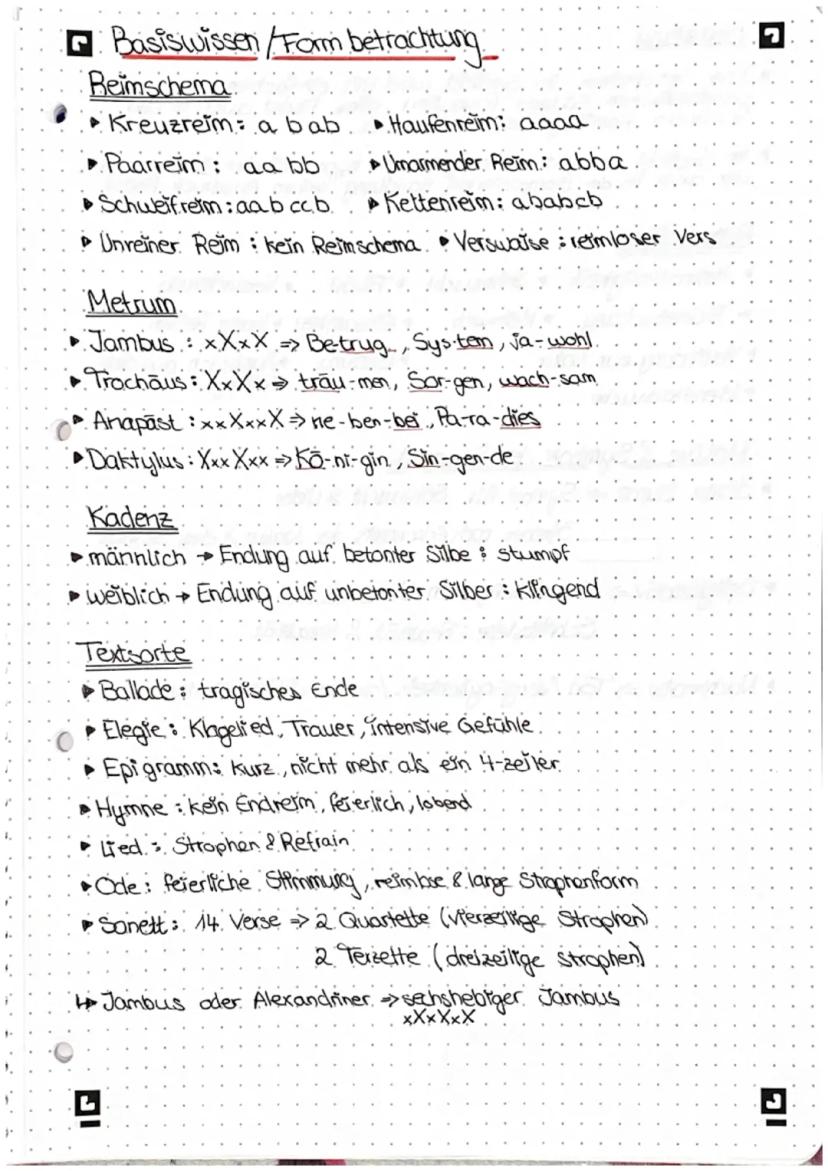 Basiswissen / Formbetrachtung
Reimschema
▸ Kreuzreim: a b a b ▸ Haufenreim: a a a a
▸ Paarreim: aa bb ▸ Umarmender Reim: abba
▸ Schweifreim: aab ccb ▸ Kettenreim: ababcb
▸ Unreiner Reim: kein Reimschema ▸ Verswaise: reimloser Vers
Metrum
▸ Jambus: xXxX ⇒ Be-trug, Sys-tem, Ja-wohl
▸ Trochäus: XxXx ⇒ träu-men, Sor-gen, wach-sam
▸ Anapäst: xxXxxX ⇒ ne-ben-bei, Pa-ra-dies
▸ Daktylus: XxxXxx ⇒ Kö-ni-gin, Sin-gen-de
Kadenz
▸ männlich → Endung auf betonter Silbe: stumpf
▸ weiblich → Endung auf unbetonter Silber: klingend
Textsorte
▸ Ballade: tragisches Ende
▸ Elegie: Klagelied, Trauer, intensive Gefühle
▸ Epigramm: kurz, nicht mehr als ein 4-zeiler
▸ Hymne: kein Endreim, feierlich, lobend
▸ Lied: Strophen & Refrain
▸ Ode: feierliche Stimmung, reimlose & lange Strophenform
▸ Sonett: 14 Verse ⇒ 2 Quartette (vierzeilige Strophen)
2 Terzette (dreizeilige Strophen)
↳ Jambus oder Alexandriner ⇒ sechshebiger Jambus
xXxXxX